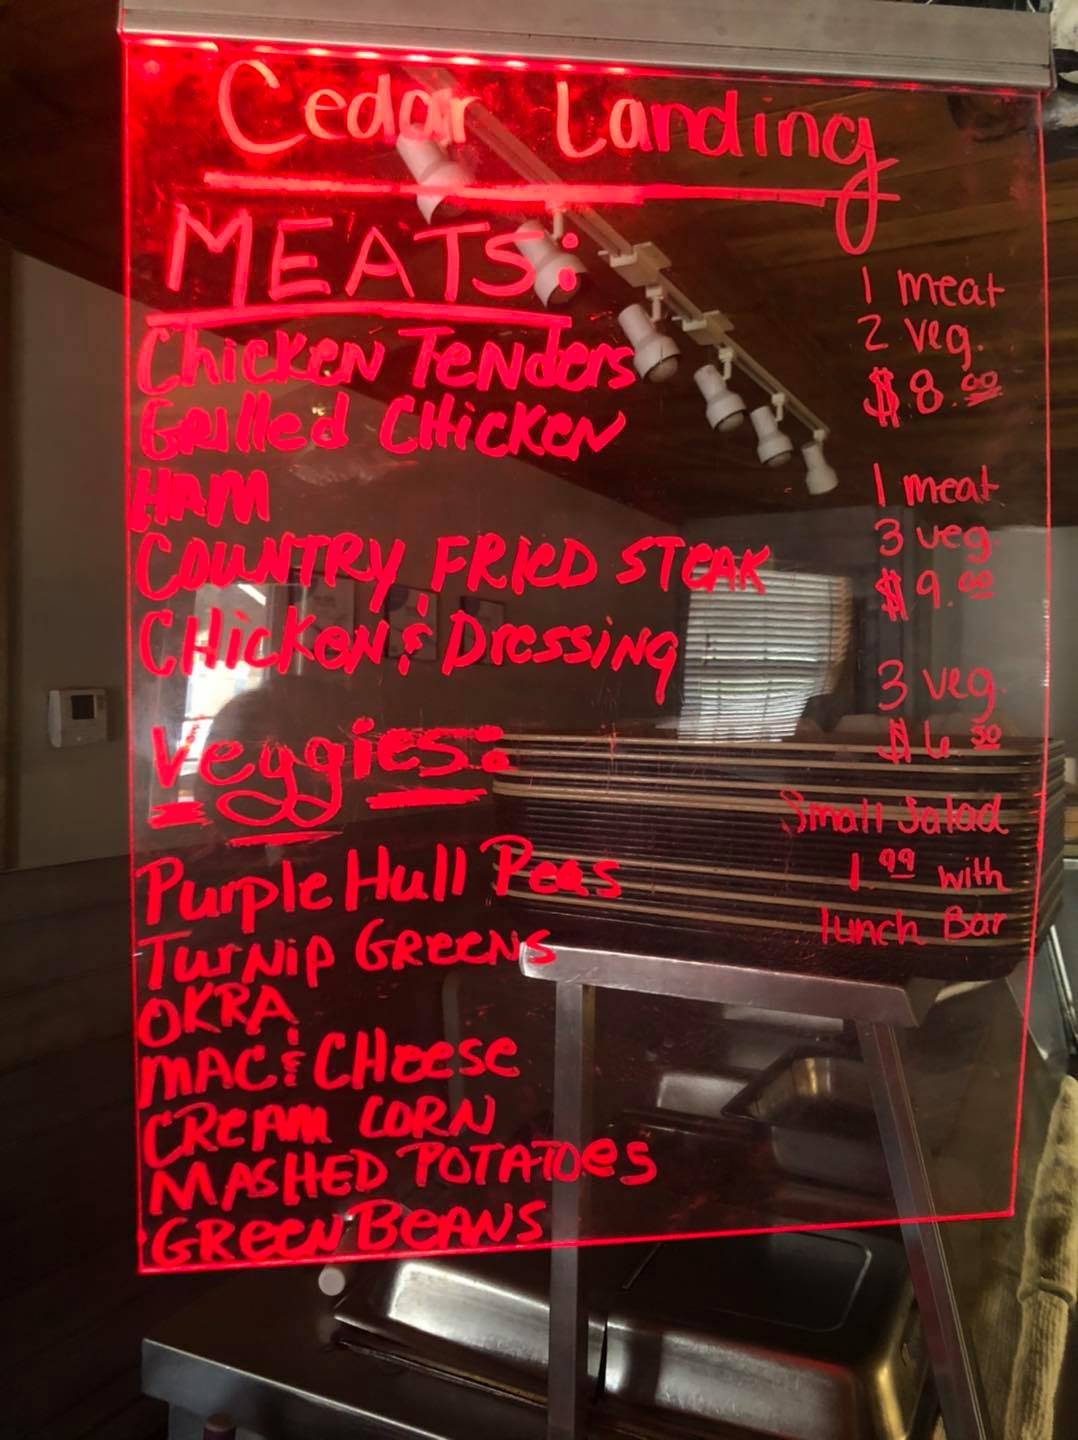 Cedar Landing
MEATS:
Chicken Tenders
Grilled Chicken
HAM
COUNTRY FRIED STEAK
Chicken & Dressing
Veggies:
Purple Hull Peas
Turnip Greens
OKRA
MAC & CHeese
CReAM CORN
MASHED POTATOes
GReeN BeANS
1 meat
2 veg.
$8.00
1 meat
3 veg.
$9.00
3 veg.
$6.50
Small Salad
1.99 with
lunch Bar